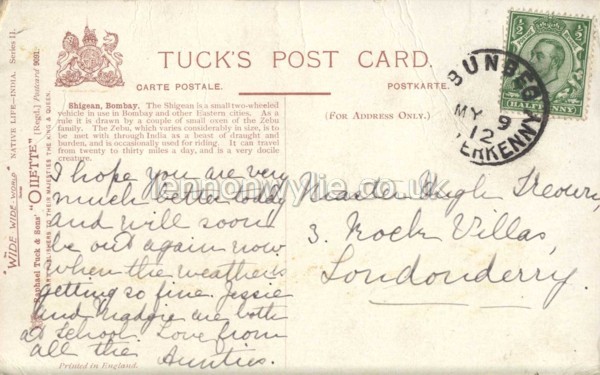 TUCK'S POST CARD.
CARTE POSTALE.
POSTKARTE.
(FOR ADDRESS ONLY.)
Shigean, Bombay. The Shigean is a small two-wheeled
vehicle in use in Bombay and other Eastern cities. As a
rule it is drawn by a couple of small oxen of the Zebu
family. The Zebu, which varies considerably in size, is to
be met with through India as a beast of draught and
burden, and is occasionally used for riding. It can travel
from twenty to thirty miles a day, and is a very docile
creature.
I hope you are very
much better today
and will soon
be out again now
when the weather is
getting so fine. Jessie
and Maggie are both
at School. Love from
all the Aunties.
Printed in England.
Master Hugh
3. Rock Villas,
Londonderry.
"WIDE WIDE WORLD" NATIVE LIFE—INDIA. Series II.
Raphael Tuck & Sons' "OILETTE" [Regd.] Postcard 9091.
TO THEIR MAJESTIES THE KING & QUEEN.
BUNBEG
MY 9
12
HALFPENNY
lennonwylie.co.uk